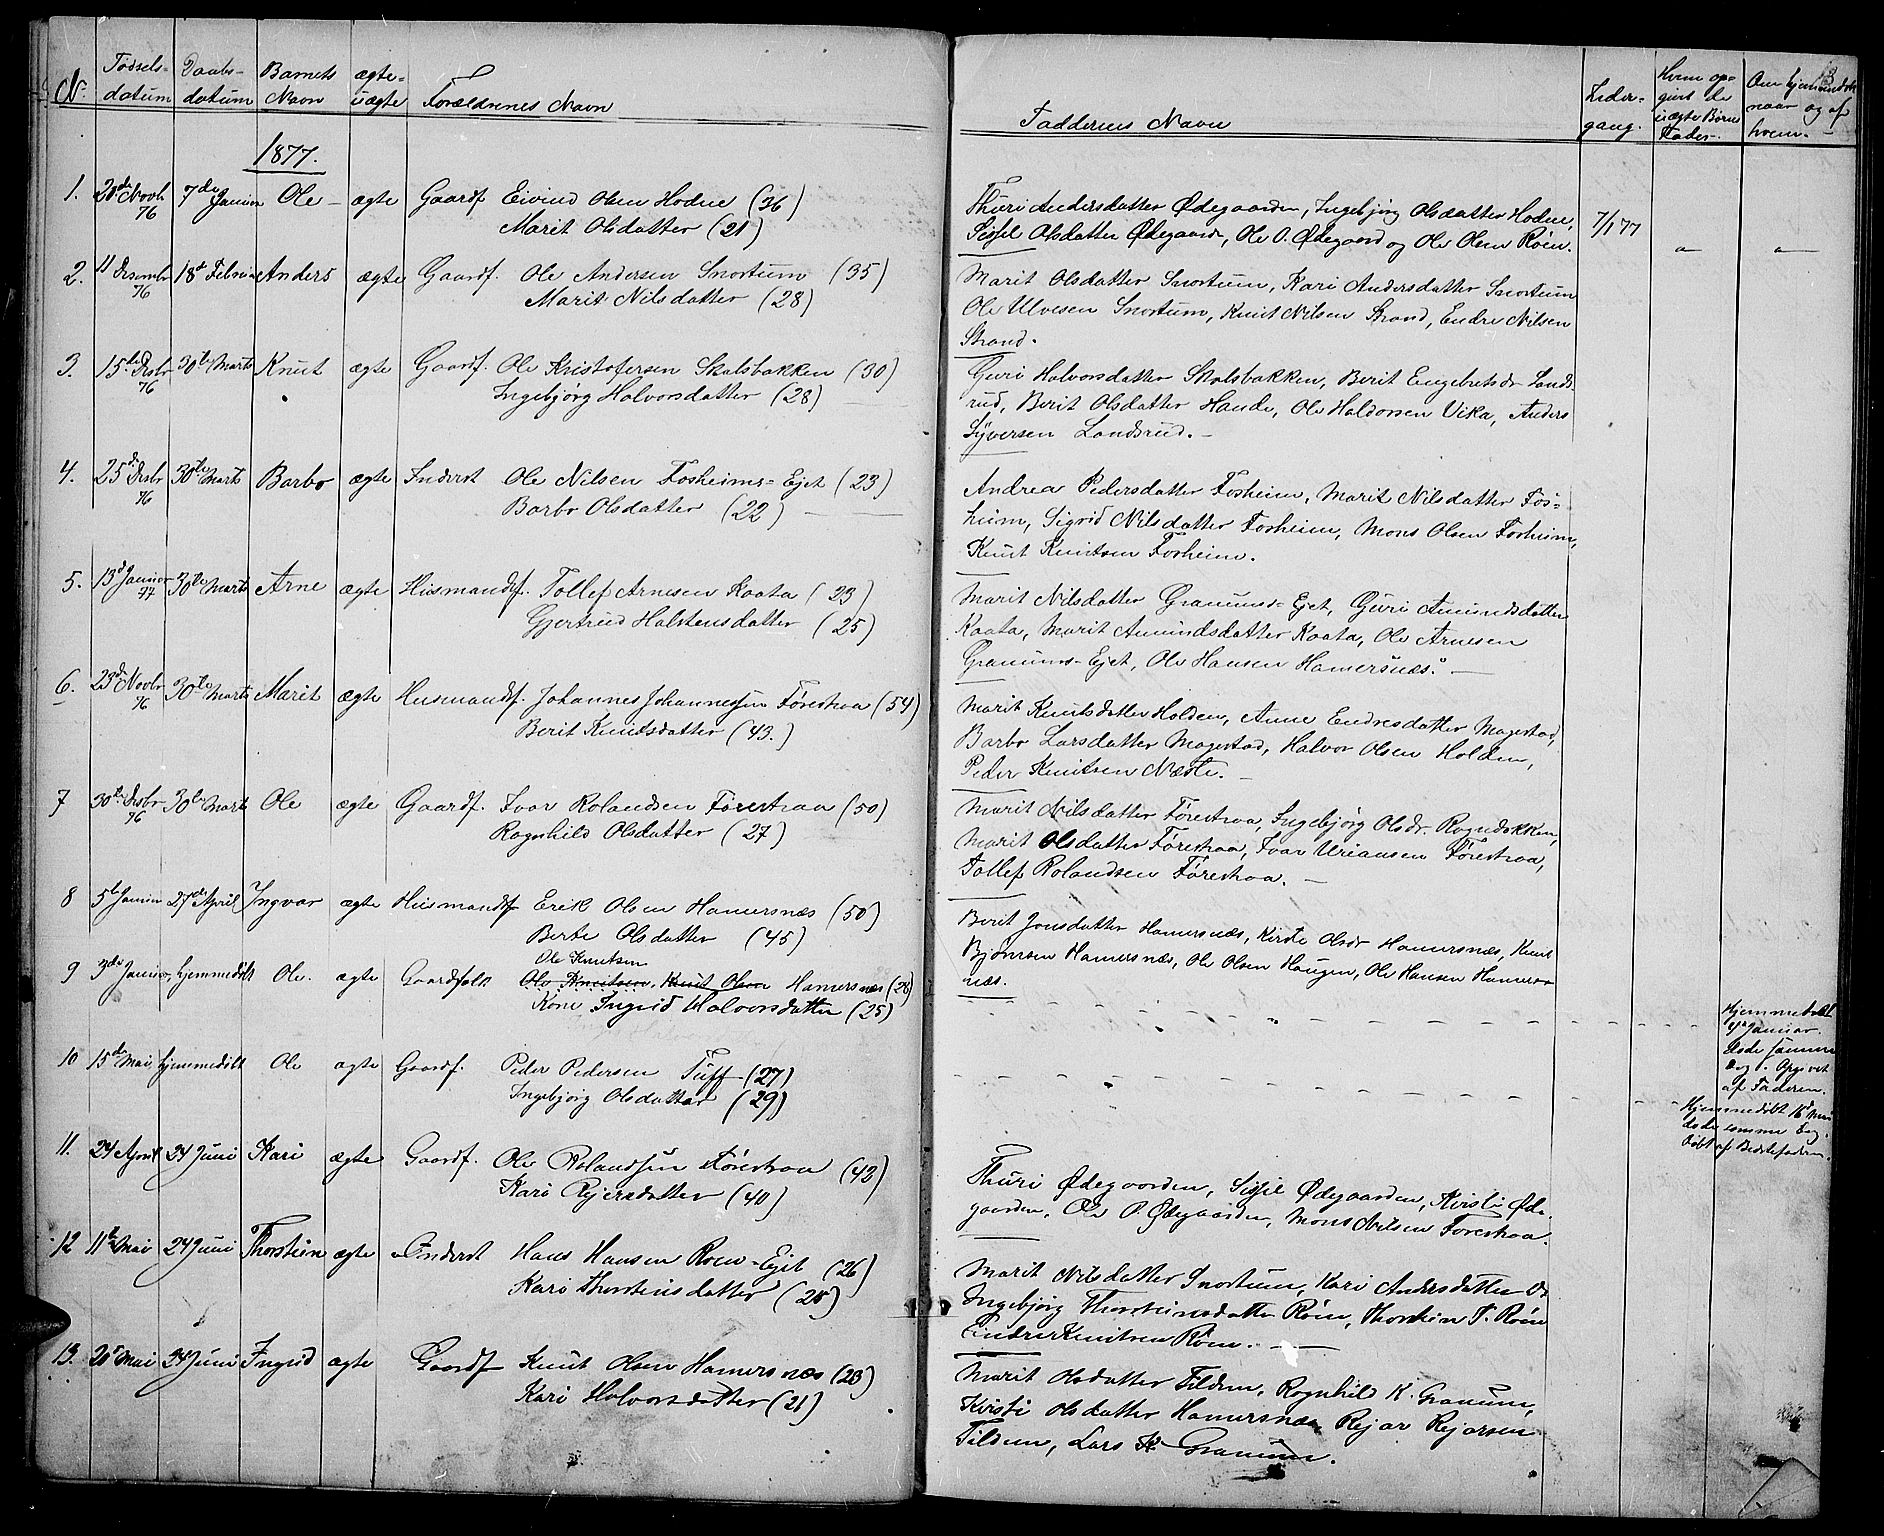 No. Fødsels- datum Daabs- datum Barnets Navn ægte- uægte Forældrenes Navn
1877.
1. 20de Novbr 76 7de Januar Ole - ægte Gaardf Eivind Olsen Hodne (36)
Marit Olsdatter (21)
2. 11 Desembr 76 18de Februar Anders ægte Gaardf. Ole Andersen Snortum (35)
Marit Nilsdatter (28)
3. 15de Desbr 76 30te Marts Knut ægte Gaardf. Ole Kristofersen Skalsbakken (30)
Ingebjørg Halvorsdatter (28)
4. 25de Desbr 76 30te Marts Barbo ægte Inderst Ole Nilsen Fosheims-Ejet (23)
Barbo Olsdatter (22)
5. 13de Januar 77 30te Marts Arne ægte Husmandsf. Tollef Arnesen Kaata (23)
Gjertrud Halstensdatter (25)
6. 23de Novbr 76 30te Marts Marit ægte Husmandsf. Johannes Johannessen Førestraa (54)
Berit Knudsdatter (43.)
7 30te Desbr 76 30te Marts Ole ægte Gaardf. Ivar Rolandsen Førestraa (50)
Rognhild Olsdatter (27)
8 5te Januar 27de April Ingvar ægte Husmandsf Erik Olsen Hamersnæs (50)
Berte Olsdatter (45)
Ole Knutsen
9 3de Januar, hjemmedøbt Ole. ægte Gaardfolk Ole Knutsen, Knut Olsen Hamersnæs (28)
Kone Ingrid Halvorsdatter (25)
10 15de Mai hjemmedøbt Ole ægte Gaardf. Peder Pedersen Tuff (27)
Ingebjørg Olsdatter (29)
11. 24 April 24 Juni Kari ægte Gaardf. Ole Rolandsen Førestraa (43)
Kari Rejersdatter (40)
12 11te Mai 24 Juni Thorstein ægte Inderst Hans Hansen Roen-Ejet (26)
Kari Thorsteinsdatter (28)
13. 20de Mai 24 Juni Ingrid ægte Gaardf Knut Olsen Hamersnæs (23)
Kari Halvorsdatter (21)
Faddernes Navn Leder- gang. Hvem op- givet de uægte Børns Fader-. Om hjemmedøbt naar og af hvem.
Thuri Andersdatter Ødegaarden, Ingebjørg Olsdatter Hodne, 7/1 77
Sissel Olsdatter Ødegaard, Ole O. Ødegaard og Ole Olsen Røen.
Marit Olsdatter Snortum, Kari Andersdatter Snortum
Ole Ulvesen Snortum, Knut Nilsen Strand, Endre Nilsen
Strand.
Guri Halvorsdatter Skalsbakken, Berit Engebretsdr Lands-
rud, Berit Olsdatter Hande, Ole Haldorsen Vika, Anders
Syversen Landsrud. -
Andrea Pedersdatter Fosheim, Marit Nilsdatter Fos-
heim, Sigrid Nilsdatter Fosheim, Mons Olsen Fosheim,
Knut Knutsen Fosheim.
Marit Nilsdatter Granums-Ejet, Guri Amundsdatter
Kaata, Marit Amundsdatter Kaata, Ole Arnesen
Granums-Ejet, Ole Hansen Hamersnæs. -
Marit Knutsdatter Holden, Anne Endresdatter Magestad,
Barbo Larsdatter Magestad, Halvor Olsen Holden,
Peder Knutsen Næste. -
Marit Nilsdatter Førestraa, Ingebjørg Olsdr. Rogndokken,
Marit Olsdatter Førestraa, Ivar Uriansen Førestraa,
Tollef Rolandsen Førestraa. -
Berit Jonsdatter Hamersnæs, Kirste Olsdr Hamersnæs, Knut
Bjørnsen Hamersnæs, Ole Olsen Haugen, Ole Hansen Hamers-
næs.
Hjemmedøbt
4de Januar.
døde samme
Dag. Opgivet
af Faderen.
Hjemmedøbt 16de Mai
døde samme Dag.
Døbt af Bedstefaderen.
Thuri Ødegaarden, Sissel Ødegaarden, Kristi Øde-
gaarden, Ole P. Ødegaarden, Mons Nilsen Førestraa.
Marit Nilsdatter Snortum, Kari Andersdatter Do
Ingebjørg Thorsteinsdatter Røen, Thorstein T. Røen
Endre Knutsen Røen. -
Marit Olsdatter Tildem, Rognhild K. Granum,
Kristi Olsdatter Hamersnæs, Rejar Rejarsen
Tildem, Lars K Granum.